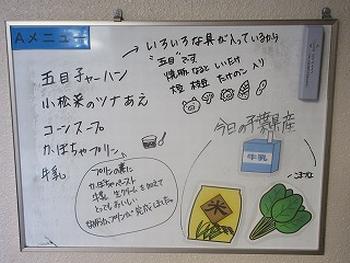 Aメニュー
五目チャーハン
小松菜のツナあえ
コーンスープ
かぼちゃプリン
牛乳
いろいろな具が入っているから
"五目"です
焼豚 なると しいたけ
大豆 枝豆 たけのこ 入り
プリンの素に
かぼちゃペースト
牛乳 生クリームを加えて
とってもおいしい
かぼちゃプリンが完成しました。
今日の千葉県産
牛乳
米
こまつな